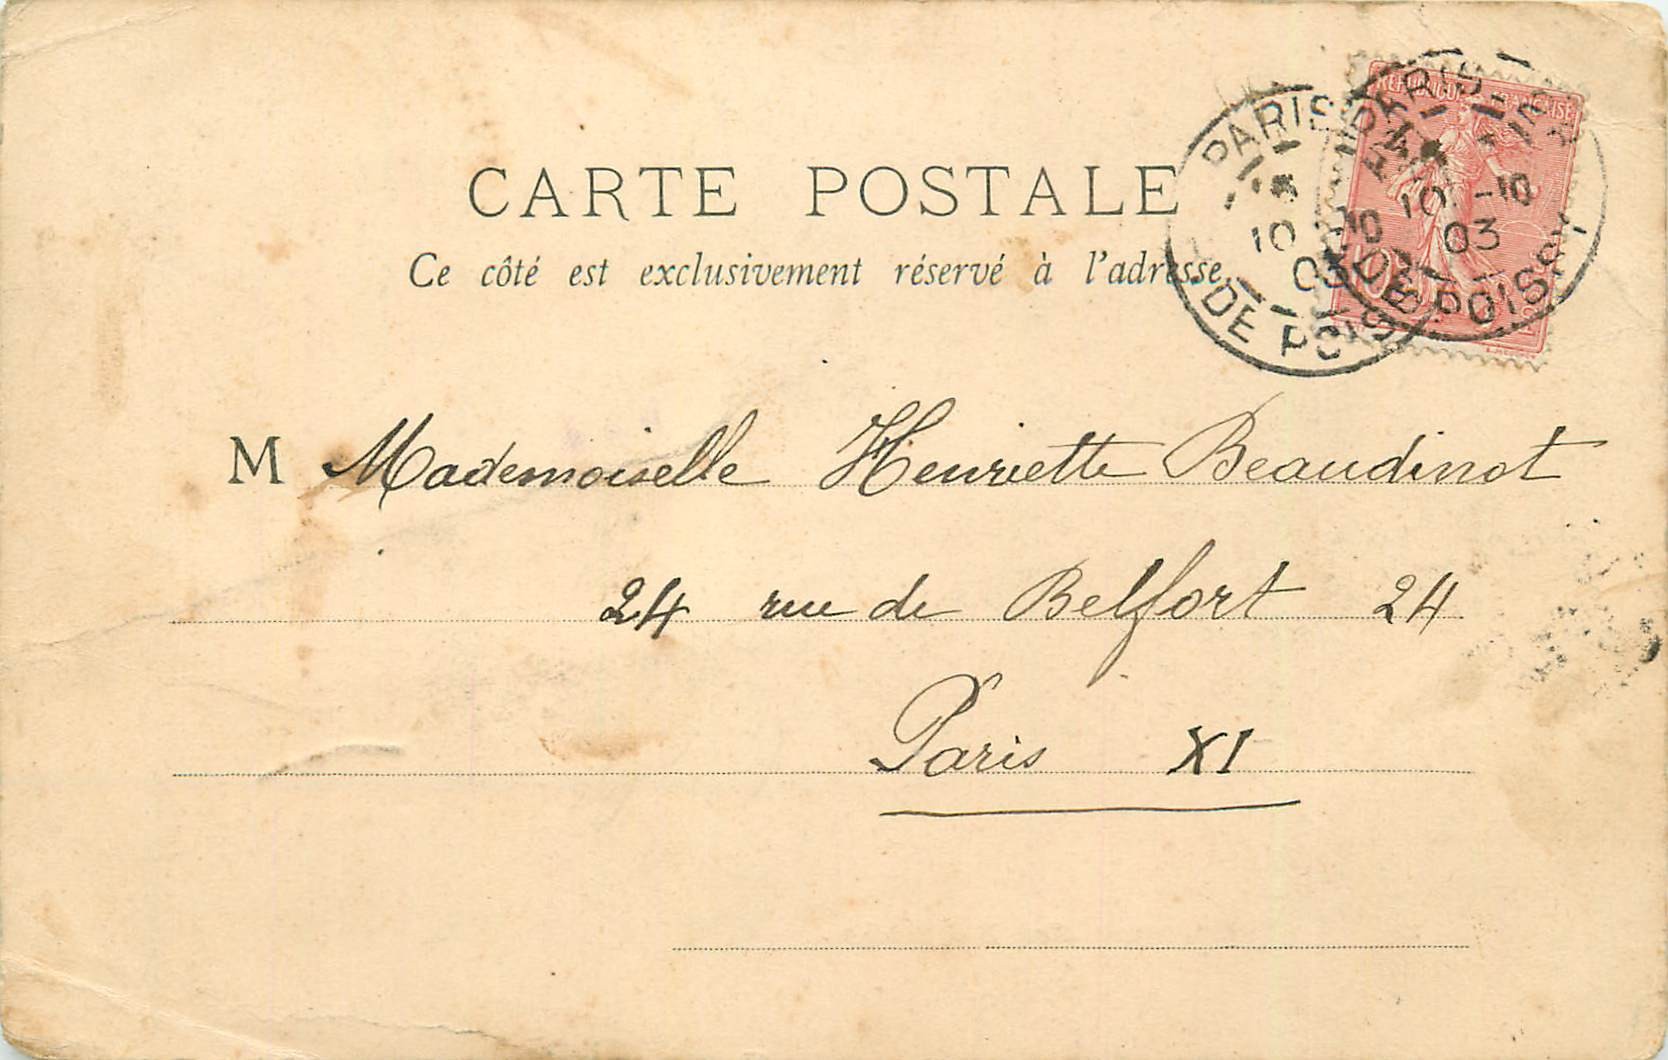 CARTE POSTALE
Ce côté est exclusivement réservé à l'adresse
RÉPUBLIQUE FRANÇAISE
PARIS
10 -10
03
DE POISSY
PARIS
10 10
03
DE POIS
M Mademoiselle Henriette Beaudinot
24 rue de Belfort 24
Paris XI